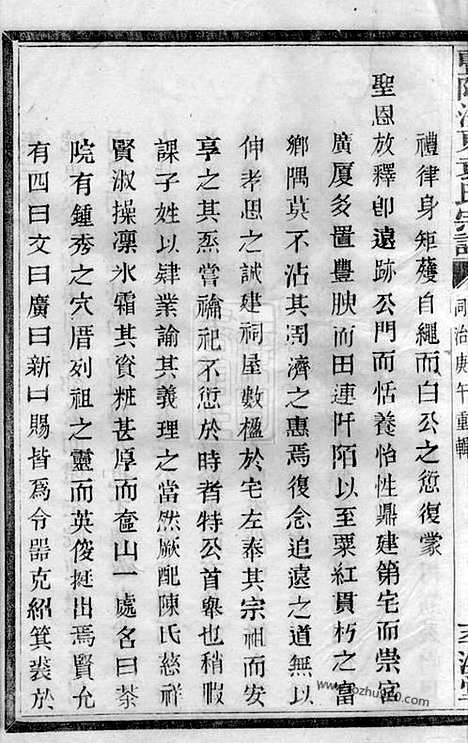 氏宗譜
同治庚午重輯
禮律身矩矱自繩而白公之愆復蒙
聖恩放釋卽遠跡公門而恬養怡性鼎建第宅而崇宫
廣厦多置豐腴而田連阡陌以至粟紅貫朽之富
鄉隅莫不沾其周濟之惠焉復念追遠之道無以
伸孝思之誠建祠屋數楹於宅左奉其宗祖而安
享之其烝嘗禴祀不愆於時者特公首舉也稍暇
課子姓以肄業諭其義理之當然厥配陳氏慈祥
賢淑操凛氷霜其資粧甚厚而奩山一處名曰荼
院有鍾秀之穴厝列祖之靈而英俊挺出焉賢允
有四曰文曰廣曰新曰賜皆爲令器克紹箕裘於